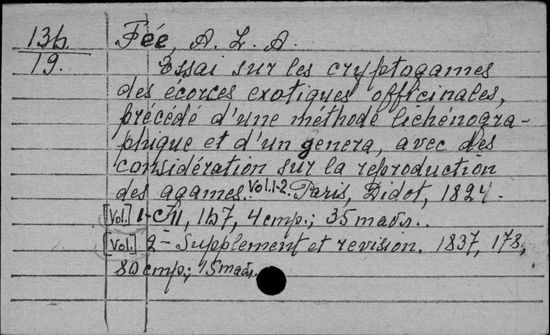 13b Fée, A. L. A.
19. Essai sur les cryptogames
des écorces exotiques officinales,
précédé d'une méthode lichenogra-
phique et d'un genera, avec des
considération sur la reproduction
des agames. Vol. 1-2. Paris, Didot, 1824.
[Vol.] 1- 167, 4 стр.; 35 табл.
[Vol.] 2 - Supplement et revision. 1837, 178,
80 стр.; 15 табл.